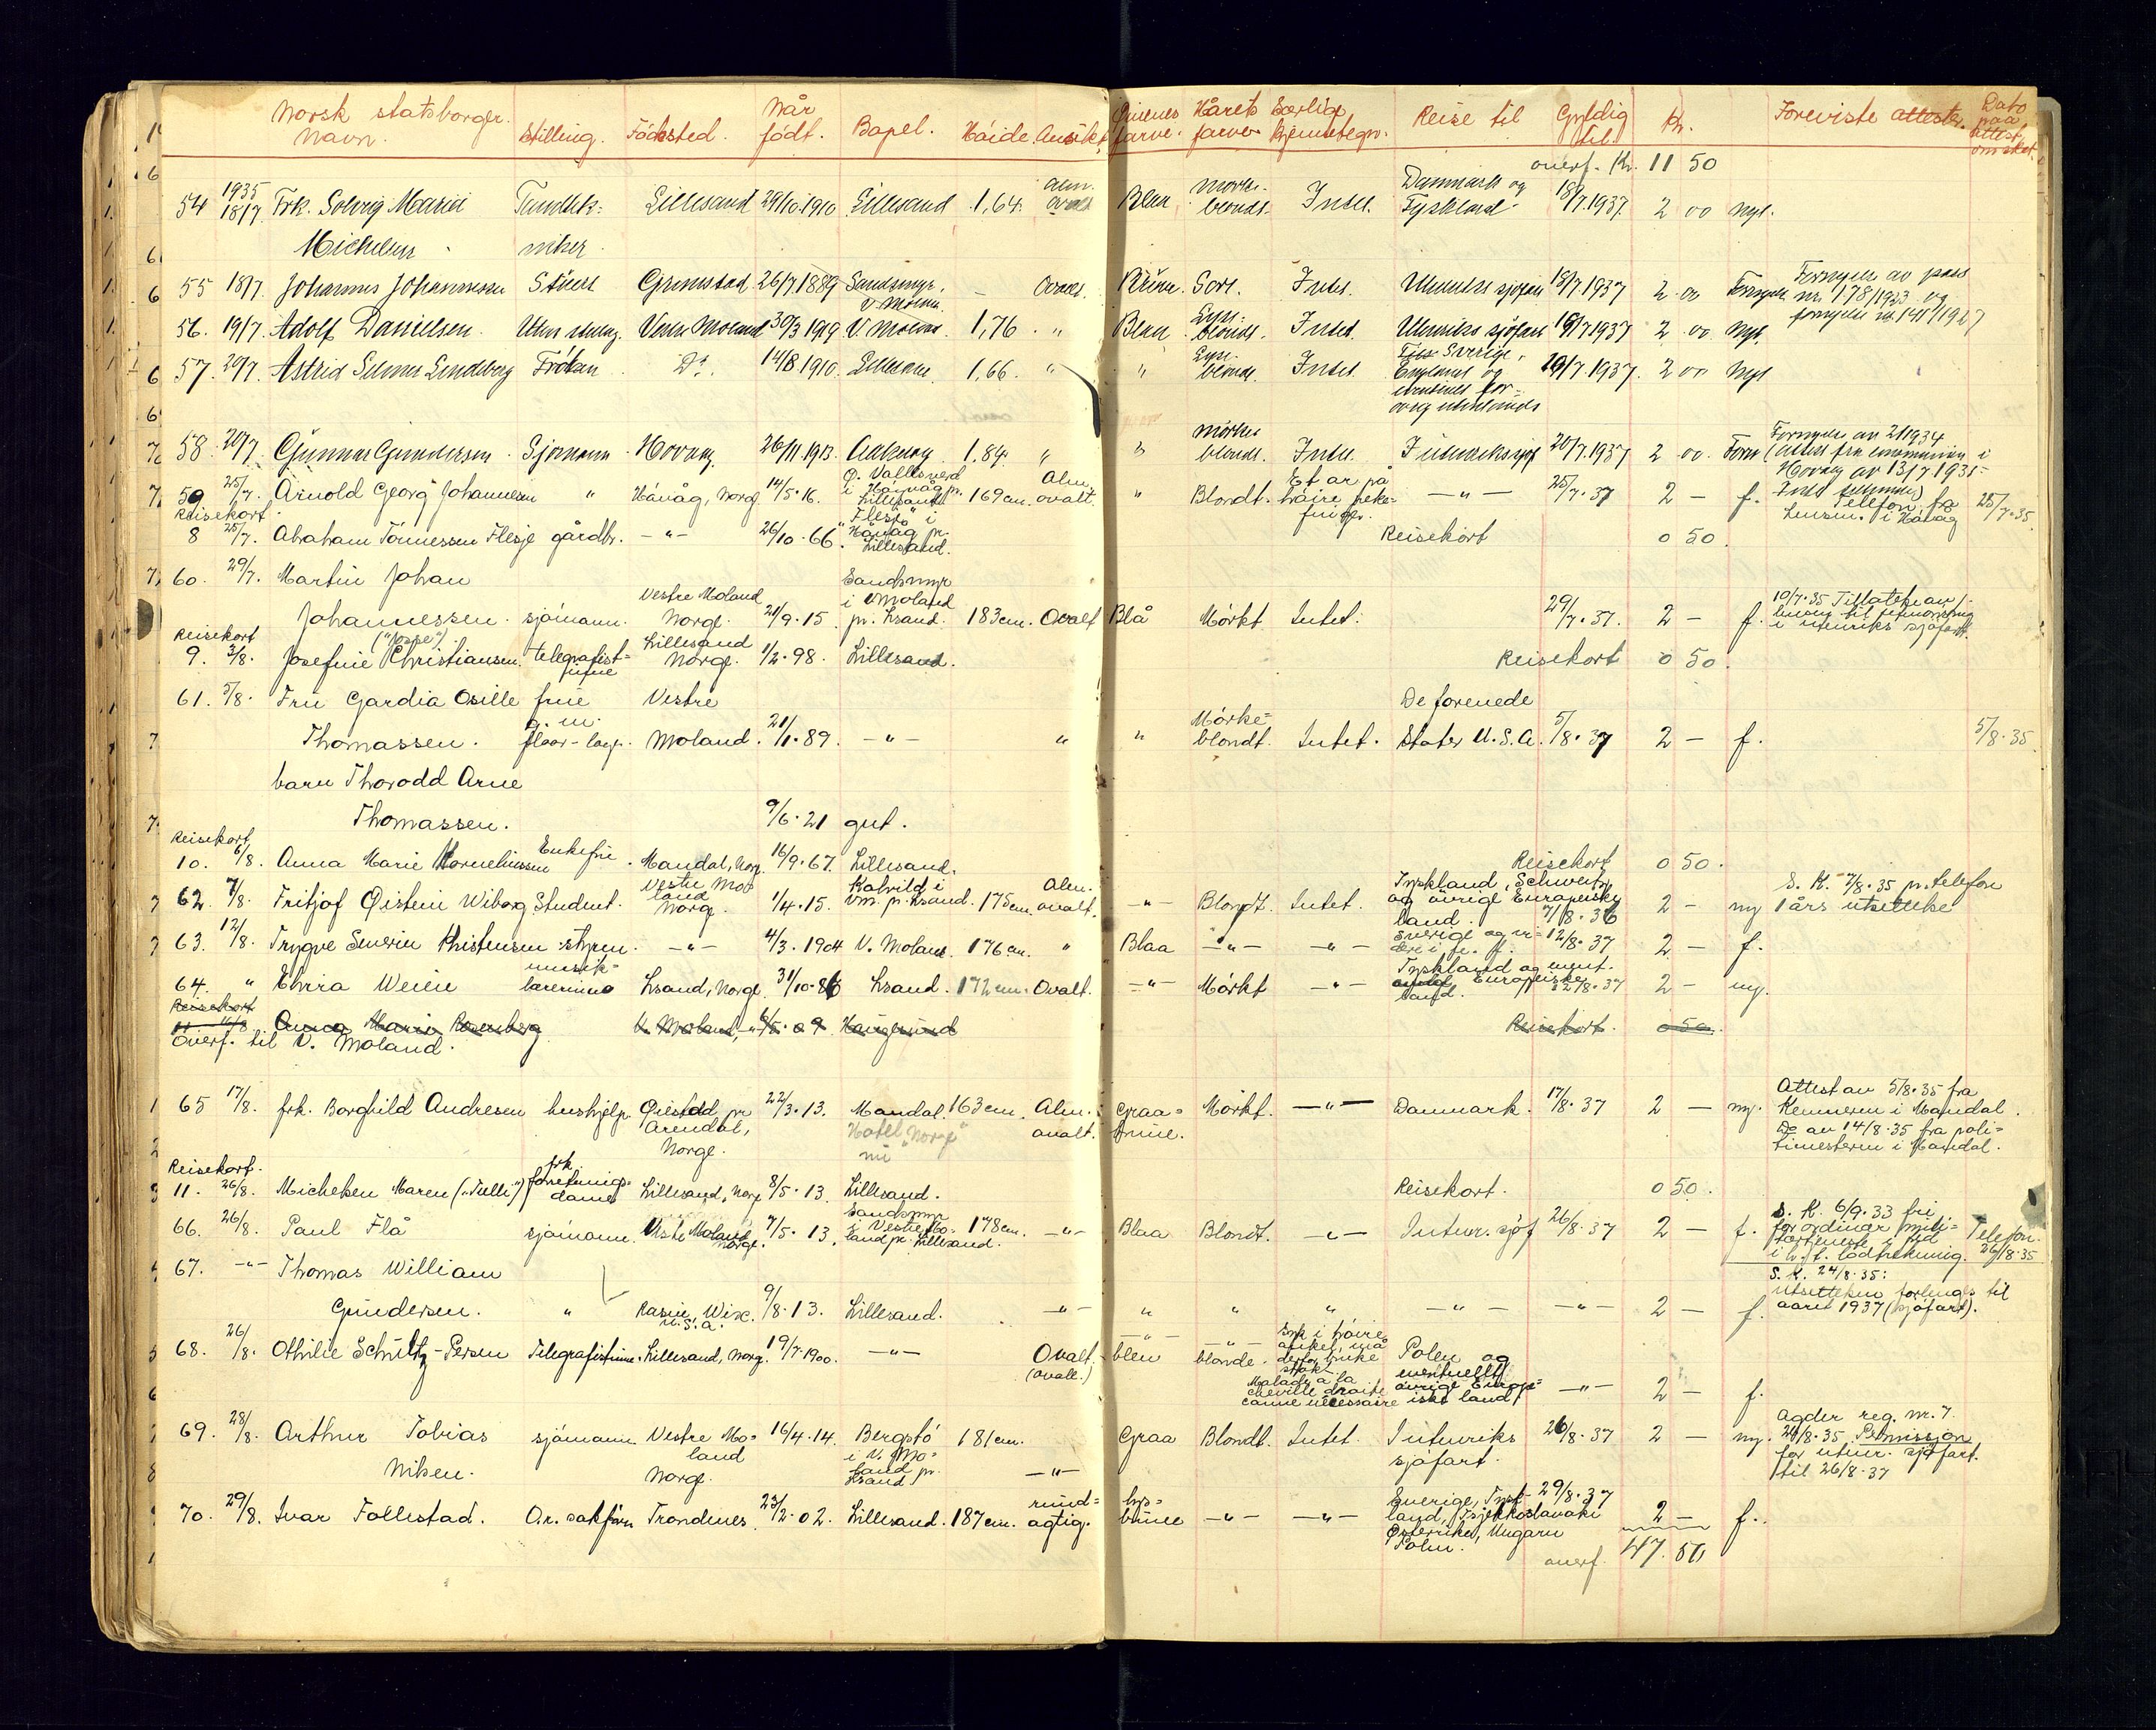 Norsk statsborger. Navn. Stilling. Födested. Når födt. Bopel. Höide. Ansikt. Öinenes farve. Hårets farve. Særlige kjennetegn. Reise til Gyldig til. Kr. Foreviste attester. Dato paa attest
overf. Kr. 11 50
54 1935 18/7 Frk. Solveig Marie Tandtek- Lillesand 29/10.1910 Lillesand 1,64. Alm. ovalt Blaa Mörke- blondt. Intet. Danmark og Tyskland 18/7.1937. 2 00 Nyt.
Michelsen niker
55 18/7. Johannes Johannessen Stuert Grimstad 26/7.1889 Sandsmyr, V. Molan. — Ovalt. Brune. Sort. Intet. Utenriks sjöfart 18/7.1937 2 00 Fornyelse av pass nr. 178/1933 og
56. 19/7. Adolf Danielsen. Vestre Moland 30/3 1919 V. Moland. 1,76 " Blaa Lyse- blondt. Intet. Utenriks sjöfart 19/7 1937 2 00 Nyt.
57. 20/7. Astrid Selmer Lindberg Fröken Do. 14/8.1910. Lillesand. 1,66. " " Lyse- blondt. Intet. Sverige, England og 20/7.1937. 2 00 Nyt
58. 20/7. Gunnar Gundersen Sjömann Hovaag. 26/11.1913. 1,84. " " Mörkeblondt. Intet. 20/7.1937 2 00. Forn Fornyelse av 2/1934
Hovaag av 13/7 1935
59 25/7. Arnold Georg Johannessen " Hövåg, Norge 14/5.16. Ö. Vallesverd i Hövåg pr. Lillesand 169 cm. Alm. ovalt. " Blondt. Et ar på höire peke- finger. —"— 25/7. 37 2 — f. Telefon fra Lensm. i Hövåg 25/7.35.
Reisekort
8 25/7. Abraham Tönnessen Flesje gårdbr. —"— 26/10.66. "Flesje" i Hövåg pr. Lillesand. Reisekort 0 50.
60. 29/7. Martin Johan
Johannessen. sjömann. Vestre Moland Norge. 21/9.15. Sandsmyr i V Moland pr. Lsand. 183 cm. Ovalt Blå Mörkt Intet. 29/7.37. 2 — f. 10/7.35 Tillatelse av i utenriks sjöfart.
Reisekort
9. 3/8. Josefine ("Josse") Christiansen. telegrafist- Lillesand Norge. 1/2.98. Lillesand. Reisekort 0 50.
61. 5/8. Fru Gardia Osille frue Vestre De forenede
Thomassen. g. m. Moland. 21/1.89. —"— " " Mörke- blondt. Intet. Stater U.S.A. 5/8.37 2 — f. 5/8.35.
barn Thorodd Arne
Thomassen. 9/6.21 gut.
Reisekort
10. 6/8. Anna Marie Kornelinssen Enkefru. Mandal, Norg. 16/9.67. Lillesand. Reisekort 0 50.
62. 7/8. Fritjof Øistein Wiborg Student. Vestre Mo- land Norge. 1/4.15. Kalvild i Vm. pr. Lsand. 175 cm. Alm. ovalt. —"— Blondt. Intet. Tyskland, Schweitz og övrige Europeiske land. 7/8.36 2 — ny S. K. 7/8.35 pr. telefon 1 års utsettelse
63. 12/8. Trygve Severin Kristensen styrm. —"— 4/3.1904 V. Moland. 176 cm. " Blaa —"— —"— Sverige og vi- 12/8.37 2 — f.
64. " Elvira Weiele musik- lærerinne Lsand, Norge. 31/10.86 Lsand. 172 cm. Ovalt. —"— Mörkt —"— Tyskland og event. Europeiske land. 12/8.37 2 — ny.
Reisekort
11. 16/8. Anna Marie Rosenberg V. Moland, —"— 6/5.09. Haugesund Reisekort. 0 50.
Overf. til V. Moland.
65 17/8. frk. Borghild Andresen hushjelp. Öiestad pr Arendal, Norge. 22/3.13. Mandal "Hotel Norge" 163 cm. Alm. ovalt. Graa- brune. Mörkt. —"— Danmark. 17/8.37 2 — ny. Attest av 5/8.35 fra Kemneren i Mandal. Do av 14/8.35 fra poli- timesteren i Mandal.
Reisekort.
11. 26/8. Michelsen Maren ("Tulli") frk. forretnings- dame Lillesand, Norg. 8/5.13. Lillesand. Reisekort. 0 50.
66. 26/8. Paul Flå sjömann. Vestre Moland Norge. 7/5.13. Sandsmyr i Vestre Mo- land pr. Lillesand. 178 cm. —"— Blaa Blondt. —"— 26/8.37 2 — f. S. K. 6/9.33 fri for ordinær mili- tærtjeneste i fred i h. t. lodtrekning. Telefon. 26/8.35
67. —"— Thomas William
Gundersen. " Rasine, Wix. U.S.A. 9/8.13. Lillesand. —"— " " " —"— —"— 2 — f. S. K. 24/8.35: utsettelsen forlenges til aaret 1937 (sjöfart).
68. 26/8. Othilie Schultz-Persen Telegrafistinne. Lillesand, Norg. 19/7.1900. —"— Ovalt (ovale.) —"— bleu —"— blonde. Syk i höire ankel, må derfor bruke stokk Malade à la cheville droite canne nécessaire Polen og eventuellt övrige Europe- iske land —"— 2 — f.
69. 28/8. Arthur Tobias sjömann. Vestre Mo- land 16/4.14. Bergstö i V. Mo- land pr. Lsand 181 cm. Graa Blondt. Intet. Utenriks sjöfart. 26/8.37 2 — ny. Agder reg. nr. 7. 26/8.35 Permissjon for utenr. sjöfart. til 26/8.37
Nilsen. Norge. —"—
70. 29/8. Ivar Follestad. O.r. sakförer Trondenes 23/2.02. Lillesand. 187 cm. rund- agtig. lys- brune —"— —"— Sverige, Tysk- land, Tsjekkoslovaki Österrike, Ungarn Polen. 29/8.37 2 — f.
overf. 47. 50